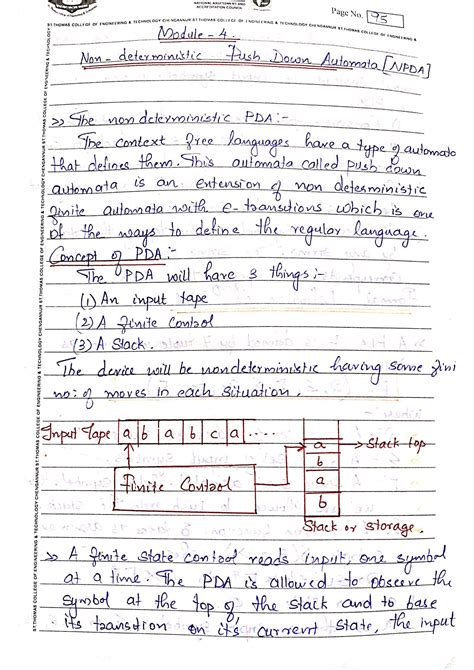 NATIONAL ASSESSMENT AND
ACCREDITATION COUNCIL
Page No. 95
ST.THOMAS COLLEGE OF ENGINEERING & TECHNOLOGY CHENGANNUR ST.THOMAS COLLEGE OF ENGINEERING & TECHNOLOGY CHENGANNUR ST.THOMAS COLLEGE OF ENGINEERING &
Module - 4.
Non-deterministic Push Down Automata [NPDA]
>> The nondeterministic PDA:-
The context free languages have a type of automato
that defines them. This automata called push down
automata is an extension of non deterministic
finite automata with e-transitions which is one
of the ways to define the regular language.
Concept of PDA:-
The PDA will have 3 things:-
(1) An input tape
(2) A finite control
(3) A Stack.
The device will be nondeterministic having some fini
no: of moves in each situation.
Input Tape a b a b c a ....
a → Stack top
b
Finite Control a
b
Stack or storage.
>> A finite state control reads input, one symbol
at a time. The PDA is allowed to observe the
symbol at the top of the stack and to base
its transition on it's current state, the input